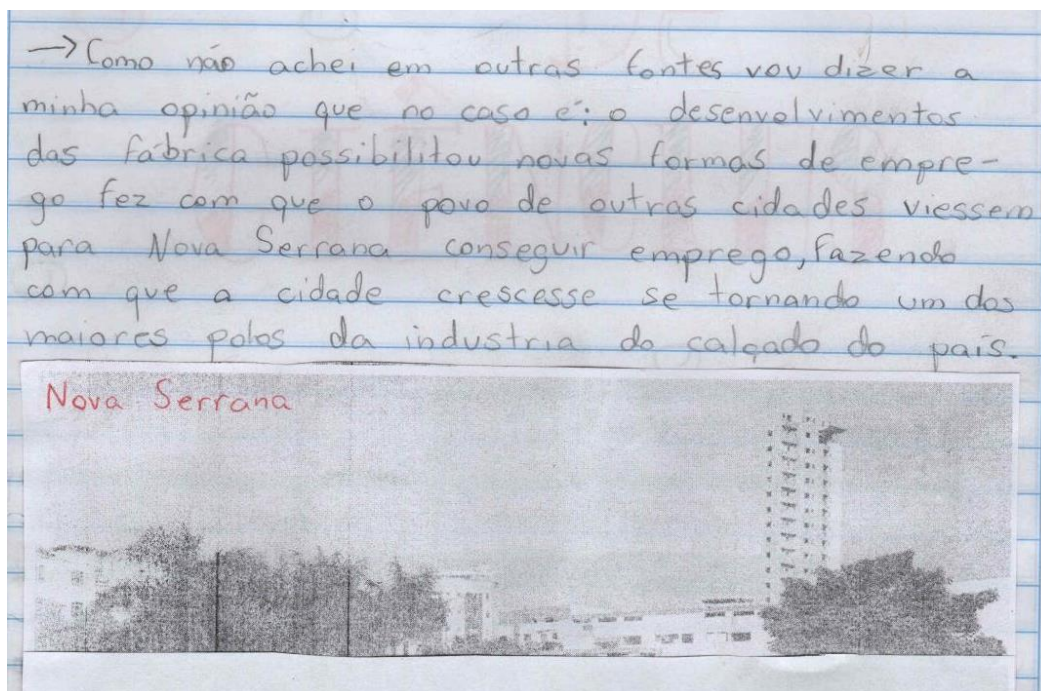 → Como não achei em outras fontes vou dizer a
minha opinião que no caso é: o desenvolvimentos
das fábrica possibilitou novas formas de empre-
go fez com que o povo de outras cidades viessem
para Nova Serrana conseguir emprego, fazendo
com que a cidade crescesse se tornando um dos
maiores polos da industria do calçado do país.
Nova Serrana